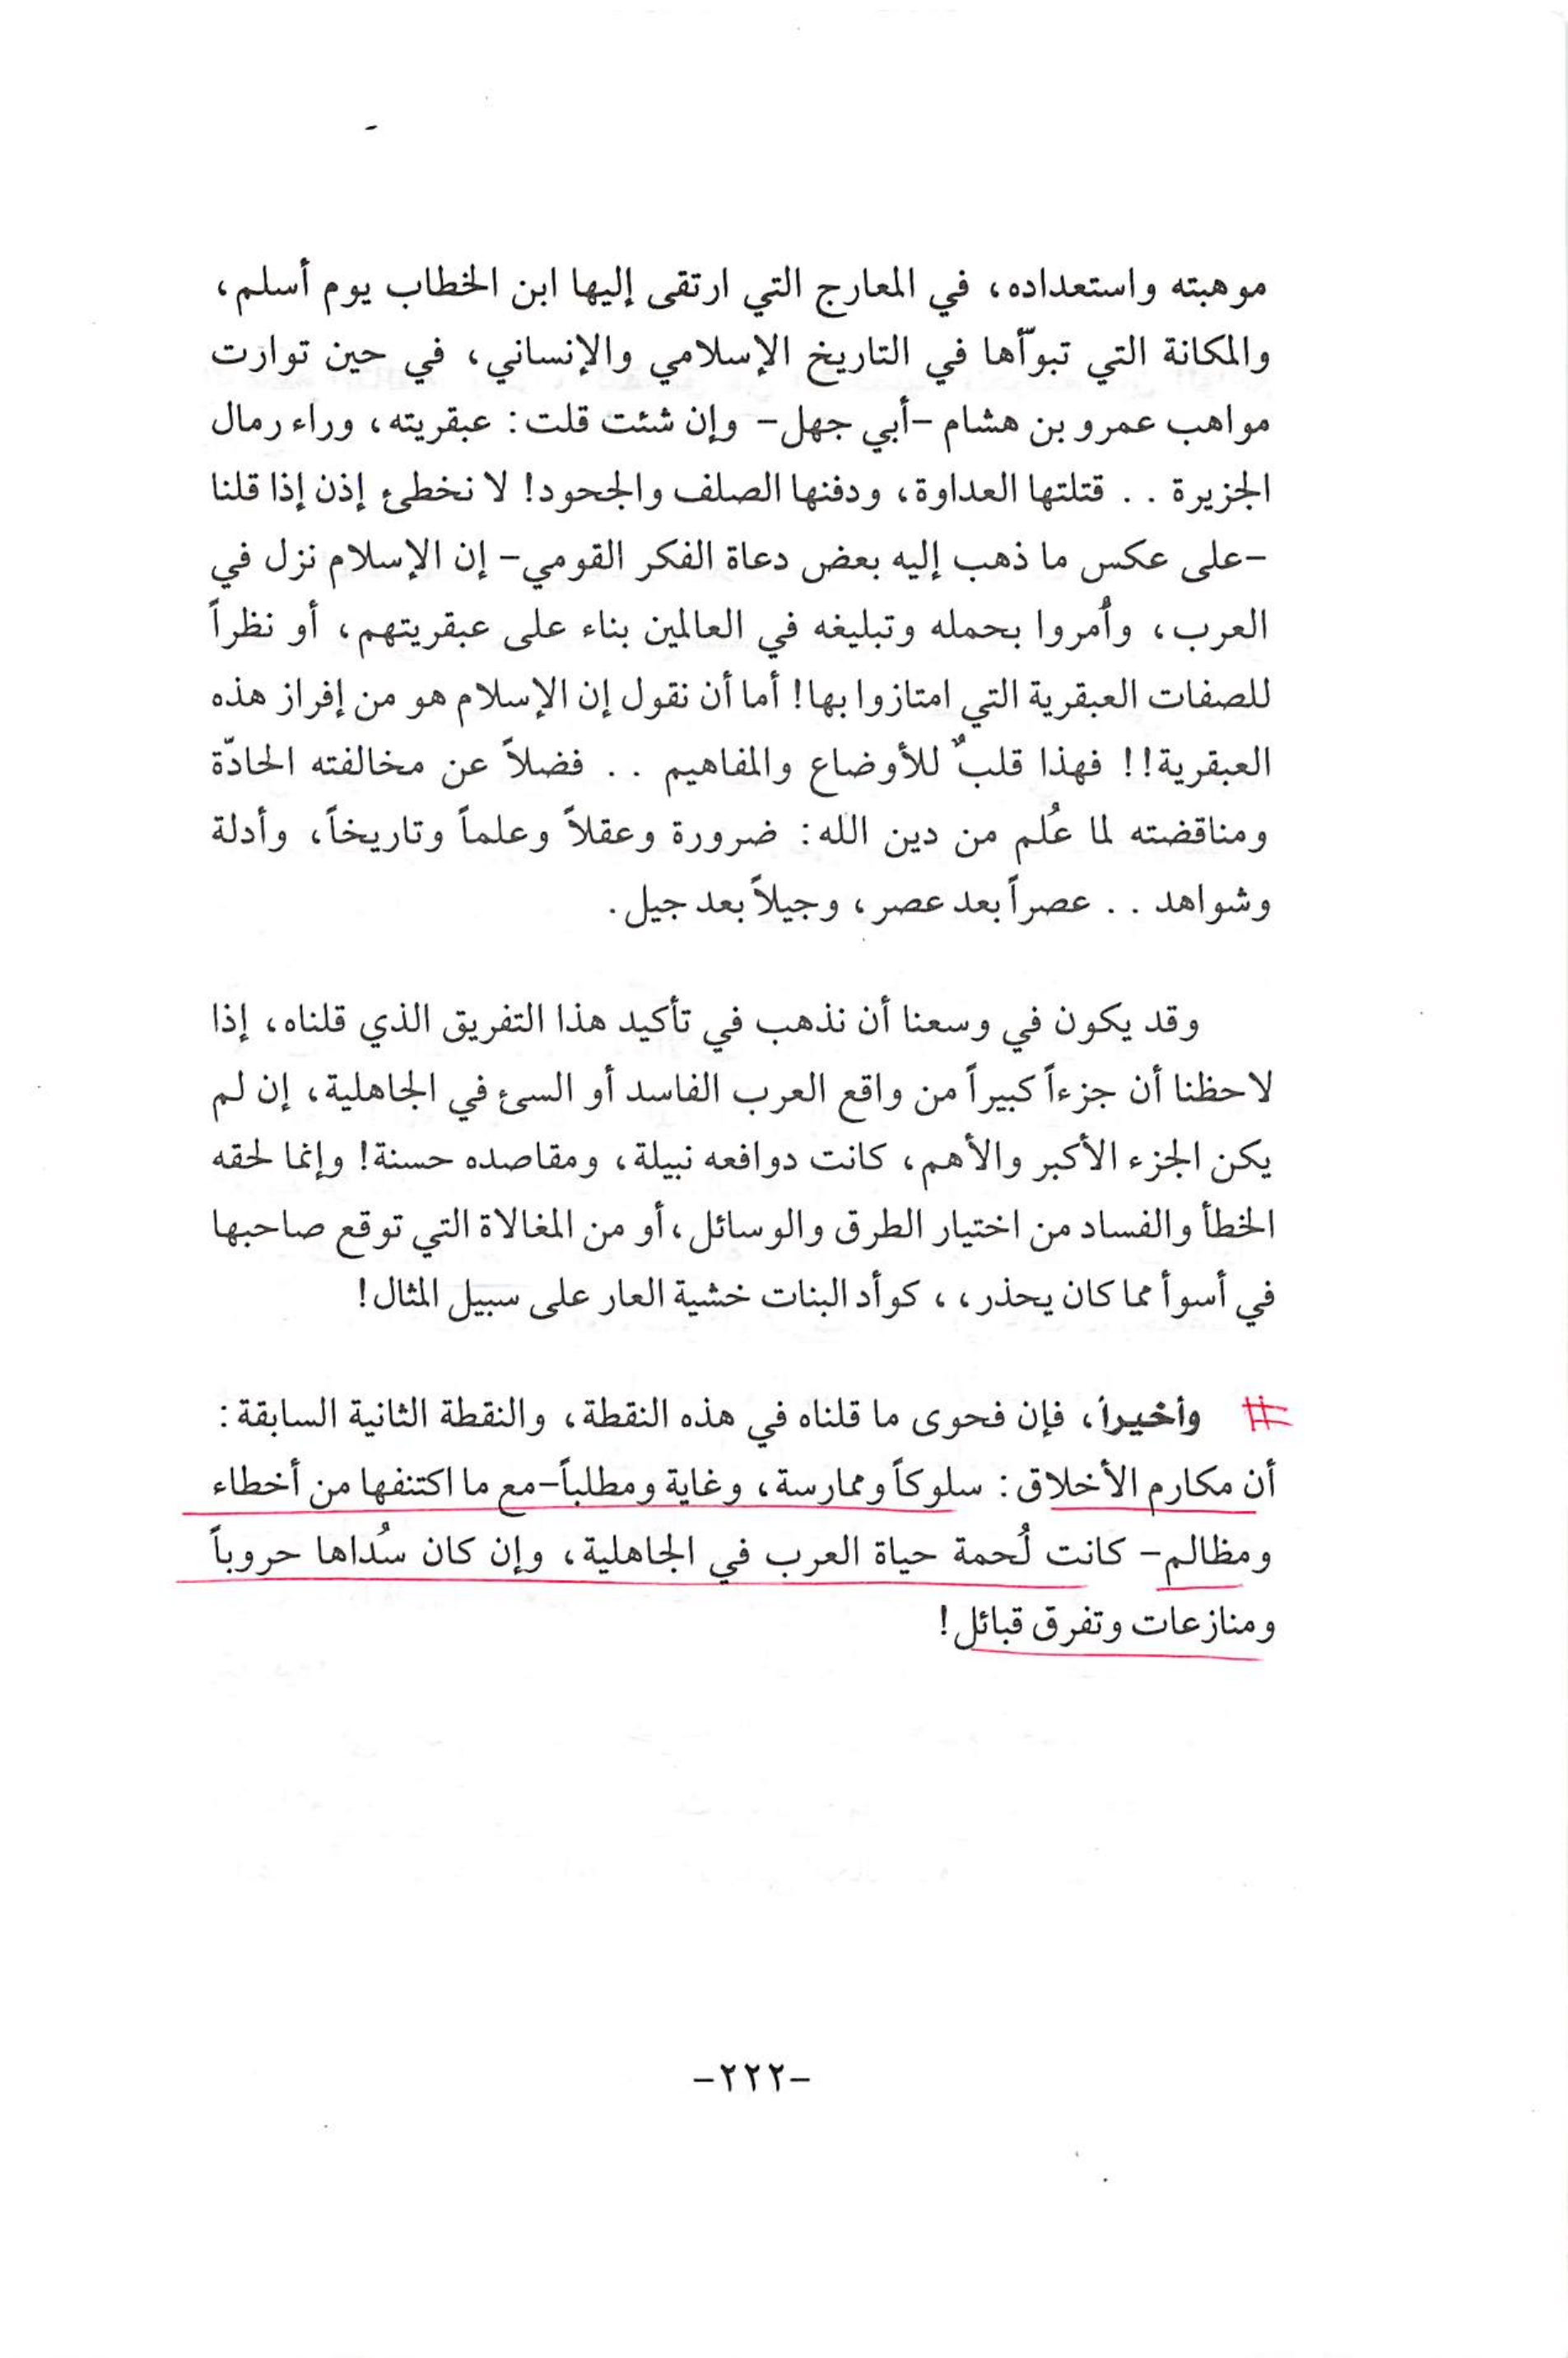 موهبته واستعداده، في المعارج التي ارتقى إليها ابن الخطاب يوم أسلم،
والمكانة التي تبوّأها في التاريخ الإسلامي والإنساني، في حين توارت
مواهب عمرو بن هشام -أبي جهل- وإن شئت قلت: عبقريته، وراء رمال
الجزيرة . . قتلتها العداوة، ودفنها الصلف والجحود! لا نخطئ إذن إذا قلنا
-على عكس ما ذهب إليه بعض دعاة الفكر القومي- إن الإسلام نزل في
العرب، وأُمروا بحمله وتبليغه في العالمين بناء على عبقريتهم، أو نظراً
للصفات العبقرية التي امتازوا بها! أما أن نقول إن الإسلام هو من إفراز هذه
العبقرية!! فهذا قلبٌ للأوضاع والمفاهيم . . فضلاً عن مخالفته الحادّة
ومناقضته لما عُلم من دين الله: ضرورة وعقلاً وعلماً وتاريخاً، وأدلة
وشواهد . . عصراً بعد عصر، وجيلاً بعد جيل.
وقد يكون في وسعنا أن نذهب في تأكيد هذا التفريق الذي قلناه، إذا
لاحظنا أن جزءاً كبيراً من واقع العرب الفاسد أو السئ في الجاهلية، إن لم
يكن الجزء الأكبر والأهم، كانت دوافعه نبيلة، ومقاصده حسنة! وإنما لحقه
الخطأ والفساد من اختيار الطرق والوسائل، أو من المغالاة التي توقع صاحبها
في أسوأ مما كان يحذر،، كوأد البنات خشية العار على سبيل المثال!
# وأخيراً، فإن فحوى ما قلناه في هذه النقطة، والنقطة الثانية السابقة:
أن مكارم الأخلاق: سلوكاً وممارسة، وغاية ومطلباً-مع ما اكتنفها من أخطاء
ومظالم- كانت لُحمة حياة العرب في الجاهلية، وإن كان سُداها حروباً
ومنازعات وتفرق قبائل!
-٢٢٢-